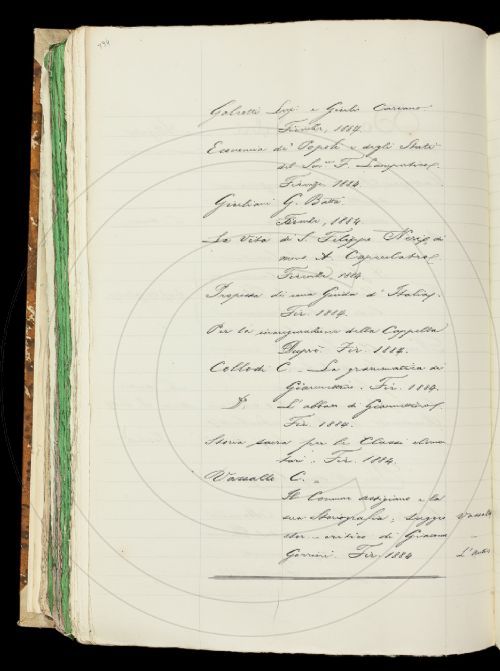 794
Galeotti Luigi e Giulio Carcano
Firenze, 1884.
Economia di Popoli e degli Stati
del Sen. F. Lampertico.
Firenze 1884.
Giuliani G. Batta
Firenze, 1884
La Vita di S. Filippo Neri, di
mons. A. Capecelatro.
Firenze, 1884
Proposta di una Guida d'Italia.
Fir. 1884.
Per la inaugurazione della Cappella
Duprè. Fir. 1884.
Collodi C. - La grammatica di
Giannettino. Fir. 1884.
L'abbaco di Giannettino.
Fir. 1884.
Storia sacra per le Classi elemen
tari. Fir. 1884.
Vassallo C. -
Il Comune astigiano e la
sua Storiografia; Vassallo
stor - critico di
Gorrini. Fir. 1884 L'Autore